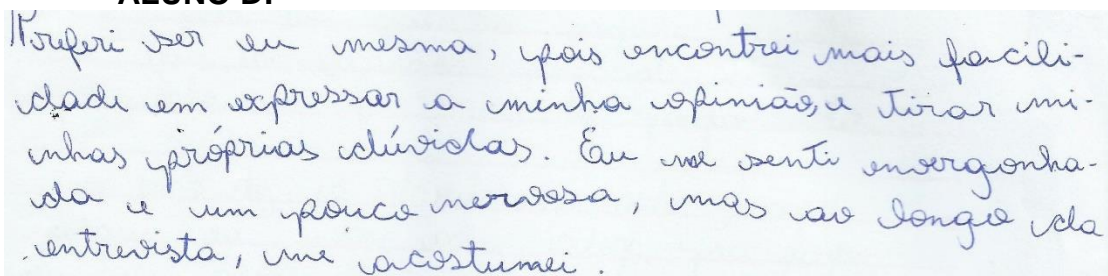 ALUNO D:
Preferi ser eu mesma, pois encontrei mais facili-
dade em expressar a minha opinião, e tirar mi-
nhas próprias dúvidas. Eu me senti envergonha-
da e um pouco nervosa, mas ao longo da
entrevista, me acostumei.